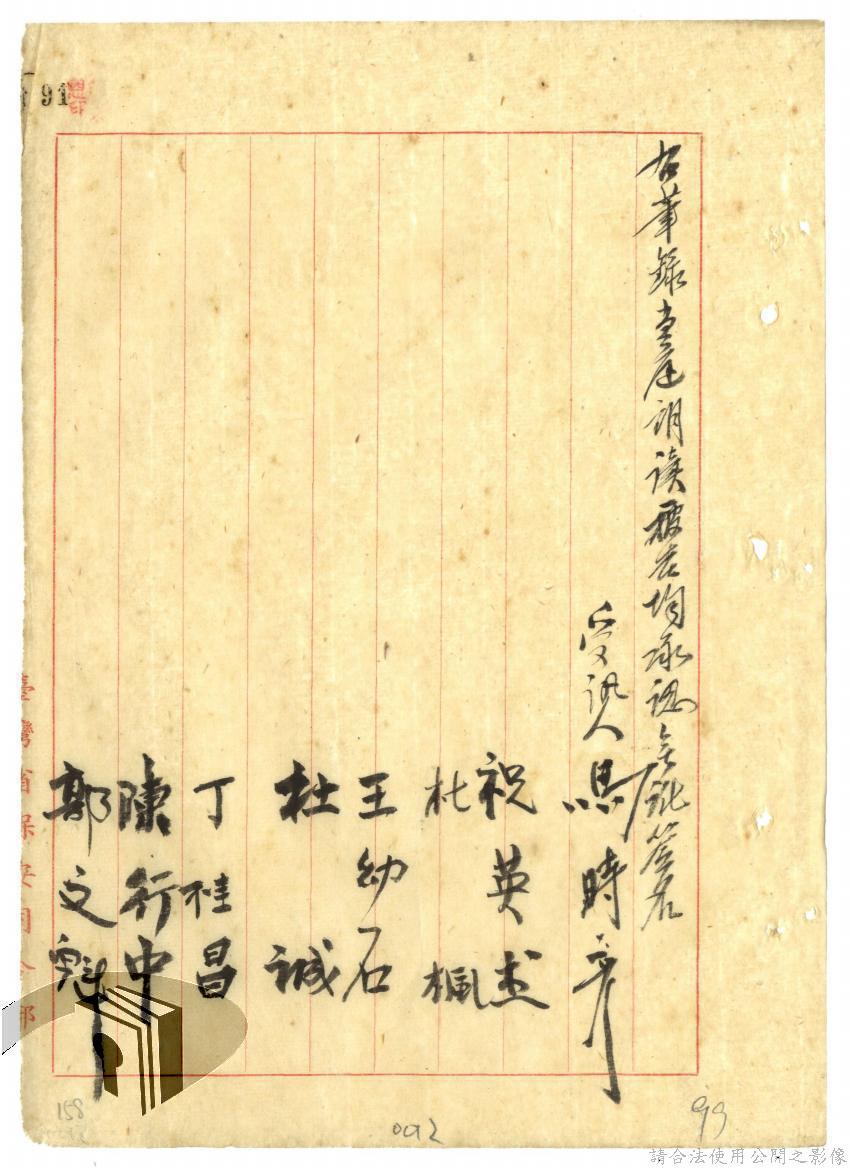 右筆錄當庭朗讀被告均承認無訛簽名
受訊人 馬時彥
祝英杰
杜楓
王幼石
杜誠
丁桂昌
陳行中
郭文魁
臺灣省保安司令部
91
158
0092
99
請合法使用公開之影像